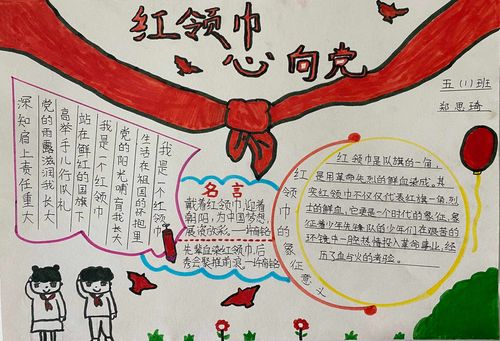 红领巾
心向党
五(1)班
郑思琦
我是一个红领巾
生活在祖国的怀抱里
党的阳光哺育我长大
我是一个红领巾
站在鲜红的国旗下
高举手儿行队礼
党的雨露滋润我长大
深知肩上责任重大
名言
戴着红领巾,迎着
朝阳,为中国梦想,
先辈血染红领巾,后
秀会聚推前浪
红领巾的象征意义
红领巾是队旗的一角,
是用革命先烈的鲜血染成。其
实红领巾不仅仅代表红旗一角,烈
士的鲜血,它更是一个时代的象征,象
征着少年先锋队的少年们在艰苦的
环境中一腔热情投入革命事业,经
历了血与火的考验。